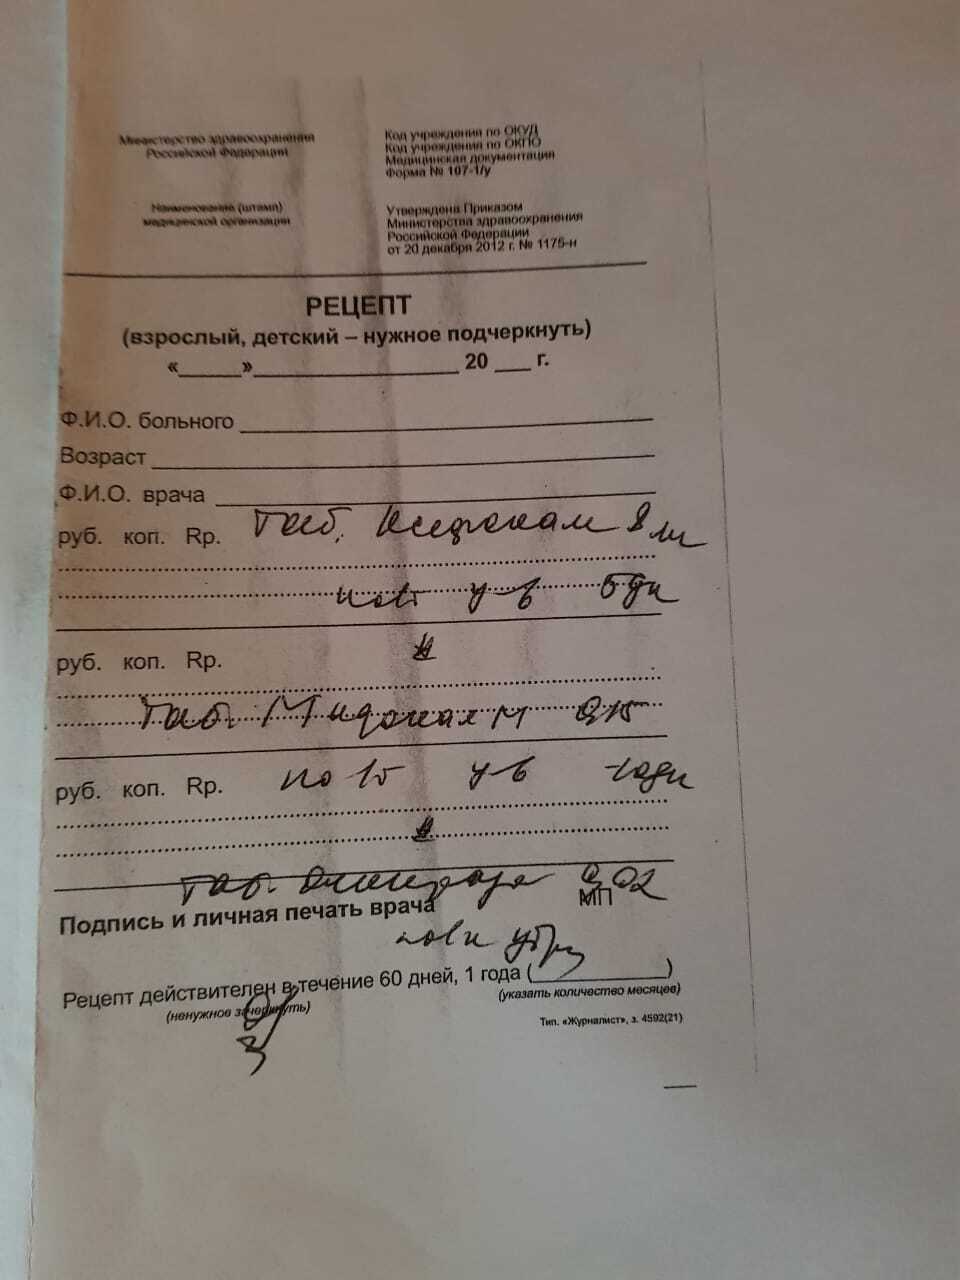 Министерство здравоохранения
Российской Федерации
Код учреждения по ОКУД
Код учреждения по ОКПО
Медицинская документация
Форма № 107-1/у
Наименование (штамп)
медицинской организации
Утверждена Приказом
Министерства здравоохранения
Российской Федерации
от 20 декабря 2012 г. № 1175-н
РЕЦЕПТ
(взрослый, детский – нужное подчеркнуть)
«_____»_________________ 20 ___ г.
Ф.И.О. больного
Возраст
Ф.И.О. врача
руб. коп. Rp. Таб. Ксефокам 8 мг
по 1т у-в 5дн
руб. коп. Rp.
Таб. Мидокалм 0,15
руб. коп. Rp. по 1т у-в 10дн
Таб. 0,02
МП
Подпись и личная печать врача
утр
Рецепт действителен в течение 60 дней, 1 года (____________)
(ненужное зачеркнуть) (указать количество месяцев)
Тип. «Журналист», з. 4592(21)